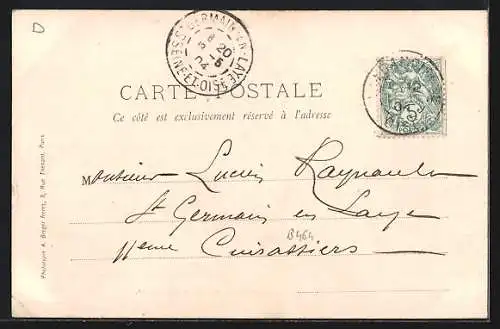 D
ST GERMAIN-EN-LAYE
8
20 -5
04
SEINE-ET-OISE
CARTE POSTALE
Ce côté est exclusivement réservé à l'adresse
Monsieur Lucien Raynault
St Germain en Laye
11eme Cuirassiers
B464
Phototypie A. Breger frères, 9, Rue Thénard, Paris